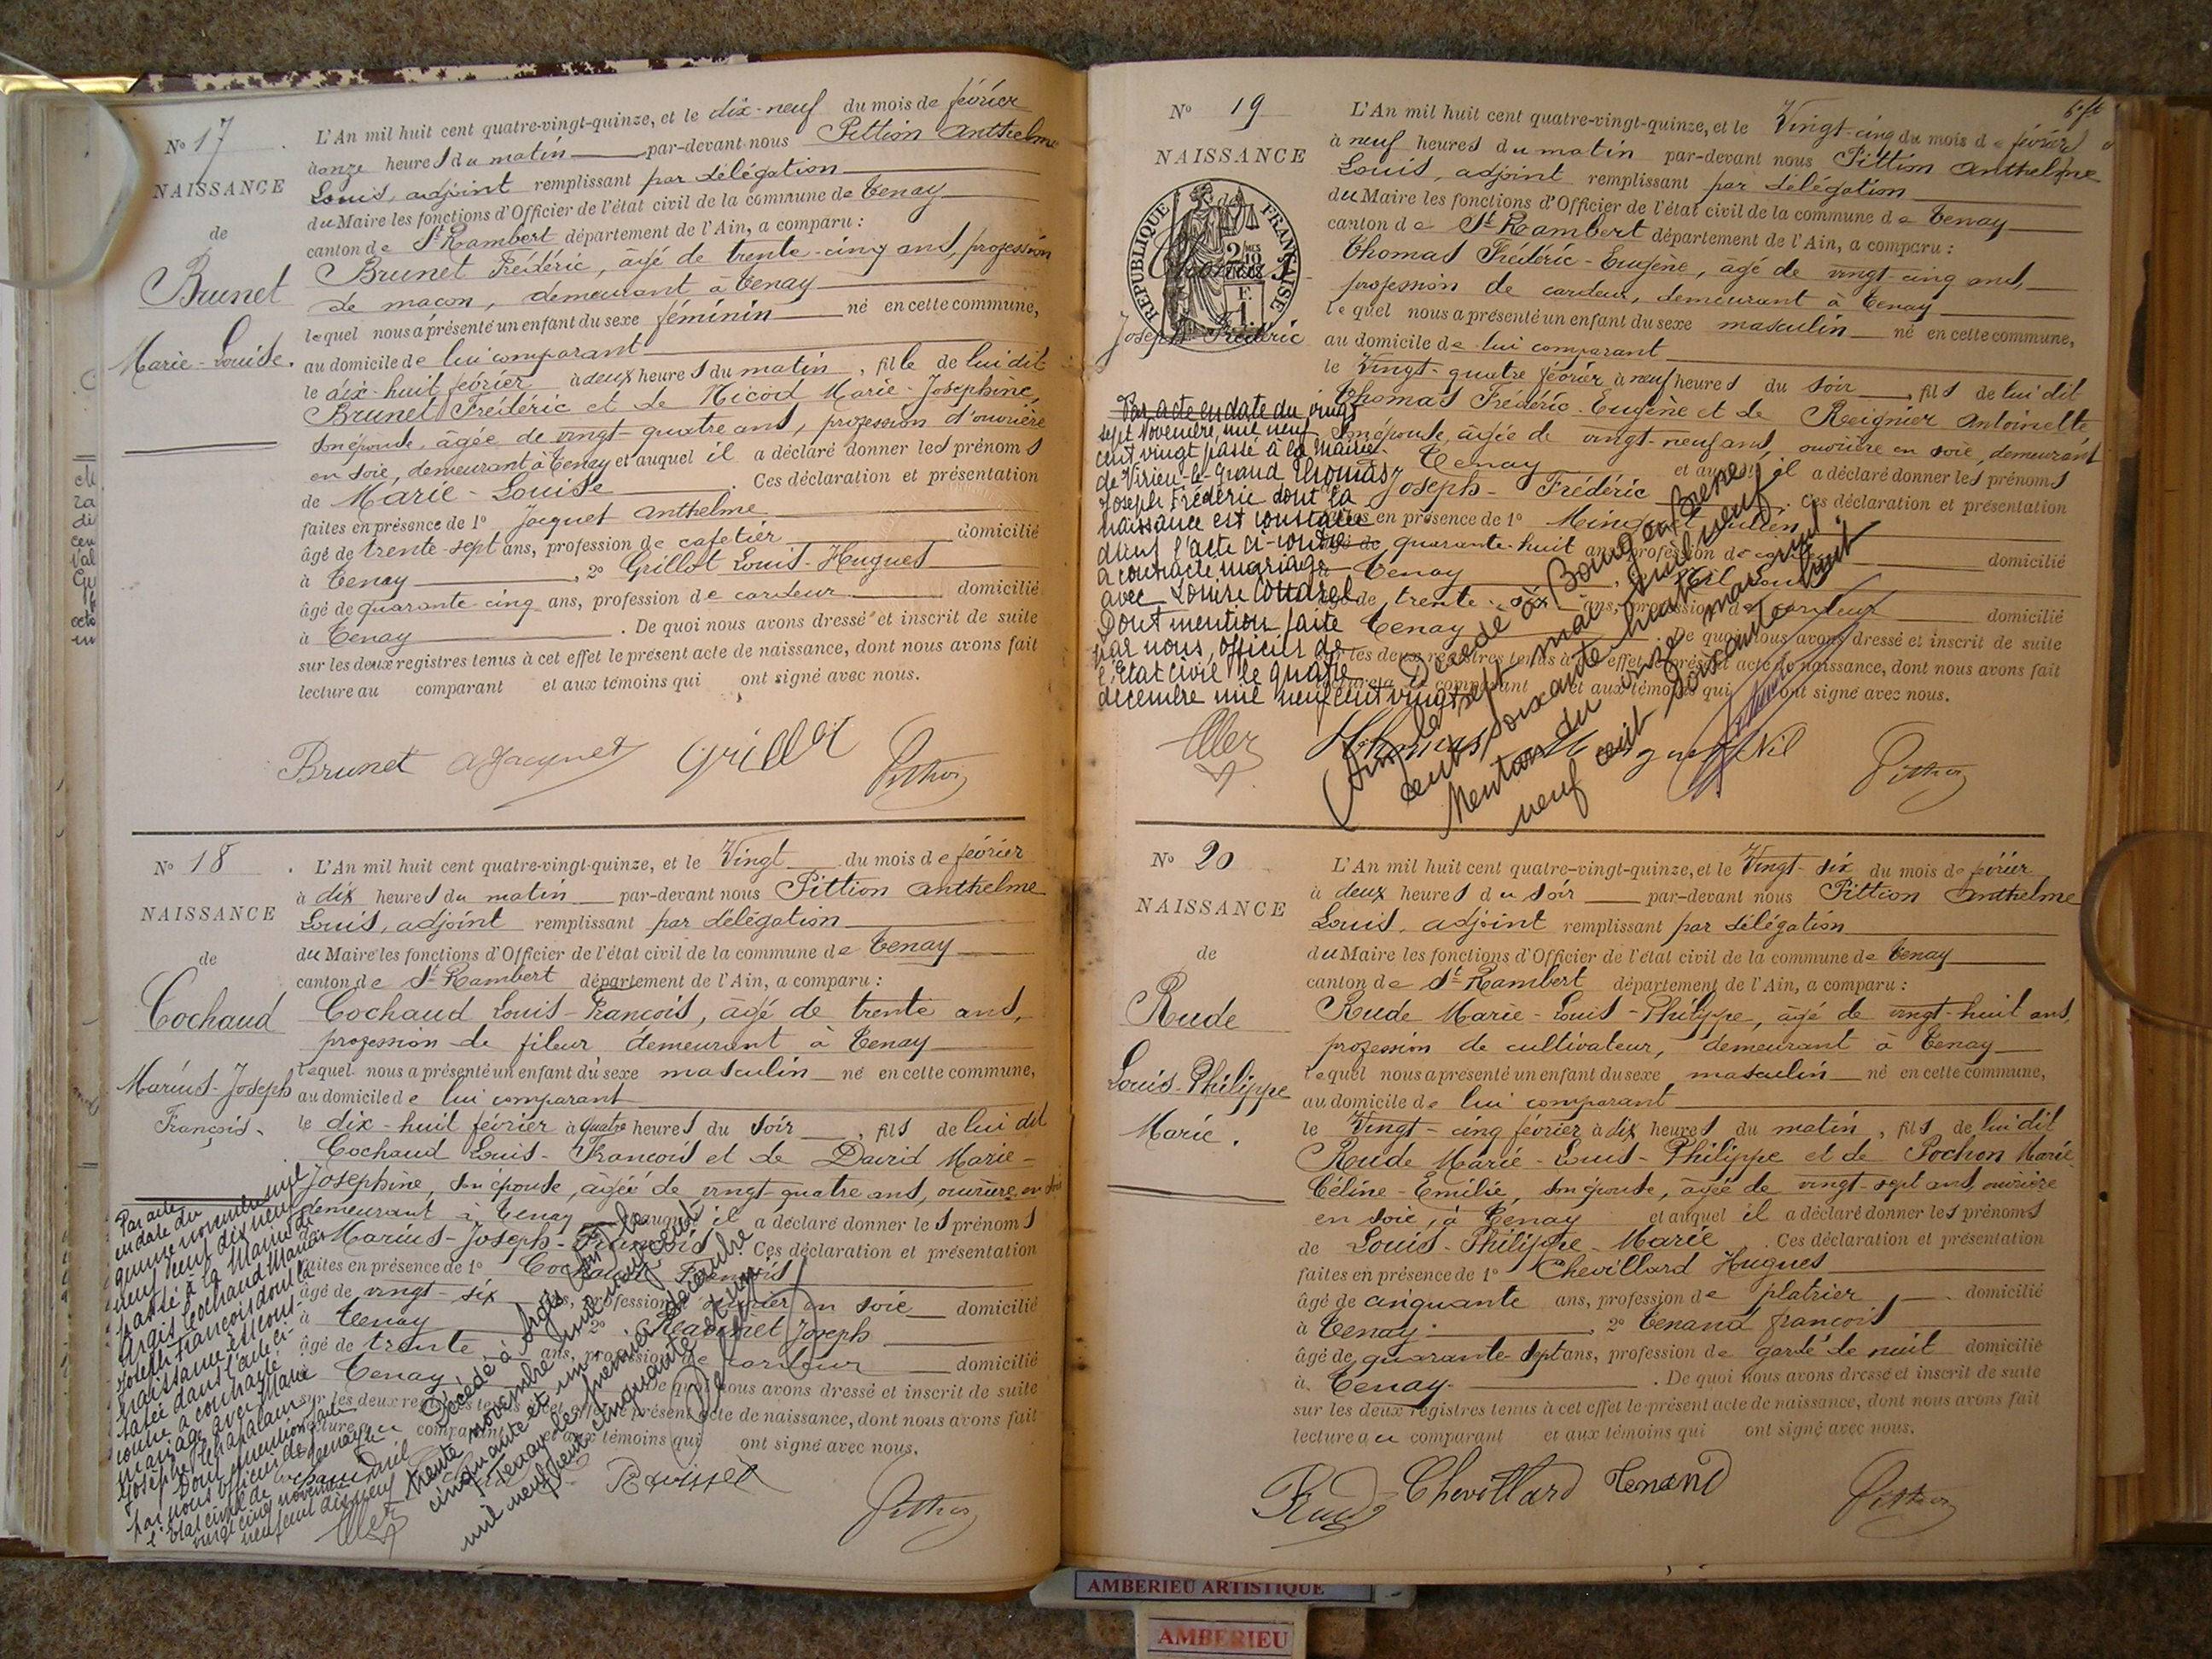 No 17
NAISSANCE
de
Brunet
Marie-Louise.
L'An mil huit cent quatre-vingt-quinze, et le dix-neuf du mois de février
à onze heures du matin par-devant nous Pittion Anthelme
Louis, adjoint remplissant par délégation
du Maire les fonctions d'Officier de l'état civil de la commune de Tenay
canton de St Rambert département de l'Ain, a comparu :
Brunet Frédéric, âgé de trente-cinq ans, profession
de maçon, demeurant à Tenay
lequel nous a présenté un enfant du sexe féminin né en cette commune,
au domicile de lui comparant
le dix-huit février à deux heures du matin, fille de lui dit
Brunet Frédéric et de Nicod Marie-Josephine,
son épouse, âgée de vingt-quatre ans, profession d'ouvrière
en soie, demeurant à Tenay et auquel il a déclaré donner les prénoms
de Marie-Louise. Ces déclaration et présentation
faites en présence de 1o Jacquet Anthelme
âgé de trente-sept ans, profession de cafetier domicilié
à Tenay, 2o Grillot Louis-Hugues
âgé de quarante-cinq ans, profession de cardeur domicilié
à Tenay. De quoi nous avons dressé et inscrit de suite
sur les deux registres tenus à cet effet le présent acte de naissance, dont nous avons fait
lecture au comparant et aux témoins qui ont signé avec nous.
Brunet A Jacquet Grillot Pittion
No 18
NAISSANCE
de
Cochaud
Marius-Joseph
François.
L'An mil huit cent quatre-vingt-quinze, et le Vingt du mois de février
à dix heures du matin par-devant nous Pittion Anthelme
Louis, adjoint remplissant par délégation
du Maire les fonctions d'Officier de l'état civil de la commune de Tenay
canton de St Rambert département de l'Ain, a comparu :
Cochaud Louis-François, âgé de trente ans,
profession de fileur demeurant à Tenay
lequel nous a présenté un enfant du sexe masculin né en cette commune,
au domicile de lui comparant
le dix-huit février à quatre heures du soir, fils de lui dit
Cochaud Louis-François et de David Marie-
Josephine, son épouse, âgée de vingt-quatre ans, ouvrière en soie
demeurant à Tenay et auquel il a déclaré donner les prénoms
de Marius-Joseph-François. Ces déclaration et présentation
faites en présence de 1o Cochaud François
âgé de vingt-six ans, profession d'ouvrier en soie domicilié
à Tenay 2o Joseph
âgé de trente ans, profession de cardeur domicilié
à Tenay De quoi nous avons dressé et inscrit de suite
sur les deux registres tenus à cet effet le présent acte de naissance, dont nous avons fait
lecture au comparant et aux témoins qui ont signé avec nous.
Pittion
Par acte
en date du
quinze novembre mil
neuf cent dix neuf
passé à la Mairie de
Argis Cochaud Marius
Joseph François dont la
naissance est cons-
tatée dans l'acte ci-
contre a contracté
mariage avec Marie
Josephe
Dont mention faite
par nous officier de
l'Etat civil de Tenay le
vingt cinq novembre mil
neuf cent dix neuf
Décédé à Argis (Ain) le
trente novembre mil neuf cent
cinquante et un.
Tenay, le premier décembre
mil neuf cent cinquante et un
No 19
NAISSANCE
de
Thomas
Joseph Frédéric
REPUBLIQUE FRANÇAISE
L'An mil huit cent quatre-vingt-quinze, et le Vingt-cinq du mois de février
à neuf heures du matin par-devant nous Pittion Anthelme
Louis, adjoint remplissant par délégation
du Maire les fonctions d'Officier de l'état civil de la commune de Tenay
canton de St Rambert département de l'Ain, a comparu :
Thomas Frédéric-Eugène, âgé de vingt-cinq ans,
profession de cardeur, demeurant à Tenay
lequel nous a présenté un enfant du sexe masculin né en cette commune,
au domicile de lui comparant
le Vingt-quatre février à neuf heures du soir, fils de lui dit
Thomas Frédéric-Eugène et de Reignier Antoinette
son épouse, âgée de vingt-neuf ans, ouvrière en soie, demeurant
à Tenay et auquel il a déclaré donner les prénoms
de Joseph-Frédéric. Ces déclaration et présentation
faites en présence de 1o
âgé de quarante-huit ans, profession de domicilié
à Tenay
âgé de trente-six ans, profession de cardeur domicilié
à Tenay. De quoi nous avons dressé et inscrit de suite
sur les deux registres tenus à cet effet le présent acte de naissance, dont nous avons fait
lecture au comparant et aux témoins qui ont signé avec nous.
Thomas Pittion
Par acte en date du vingt
sept Novembre, mil neuf
cent vingt passé à la Mairie
de Virieu-le-Grand Thomas
Joseph Frédéric dont la
naissance est constatée
dans l'acte ci-contre
a contracté mariage
avec Louise Cottarel
Dont mention faite
par nous, officier de
l'Etat civil le quatre
décembre mil neuf cent vingt
Décédé à Bourg en Bresse
(Ain) le sept mai mil neuf
cent soixante huit.
Mention du onze mai mil
neuf cent soixante huit
No 20
NAISSANCE
de
Rude
Louis-Philippe
Marie.
L'An mil huit cent quatre-vingt-quinze, et le Vingt-six du mois de février
à deux heures du soir par-devant nous Pittion Anthelme
Louis, adjoint remplissant par délégation
du Maire les fonctions d'Officier de l'état civil de la commune de Tenay
canton de St Rambert département de l'Ain, a comparu :
Rude Marie-Louis-Philippe, âgé de vingt-huit ans,
profession de cultivateur, demeurant à Tenay
lequel nous a présenté un enfant du sexe masculin né en cette commune,
au domicile de lui comparant
le Vingt-cinq février à dix heures du matin, fils de lui dit
Rude Marie-Louis-Philippe et de Pochon Marie
Céline-Emilie, son épouse, âgée de vingt-sept ans, ouvrière
en soie, à Tenay et auquel il a déclaré donner les prénoms
de Louis-Philippe-Marie. Ces déclaration et présentation
faites en présence de 1o Chevillard Hugues
âgé de cinquante ans, profession de platrier domicilié
à Tenay, 2o Tenand françois
âgé de quarante-sept ans, profession de garde de nuit domicilié
à Tenay. De quoi nous avons dressé et inscrit de suite
sur les deux registres tenus à cet effet le présent acte de naissance, dont nous avons fait
lecture au comparant et aux témoins qui ont signé avec nous.
Rude Chevillard Tenand Pittion
AMBERIEU ARTISTIQUE
AMBERIEU